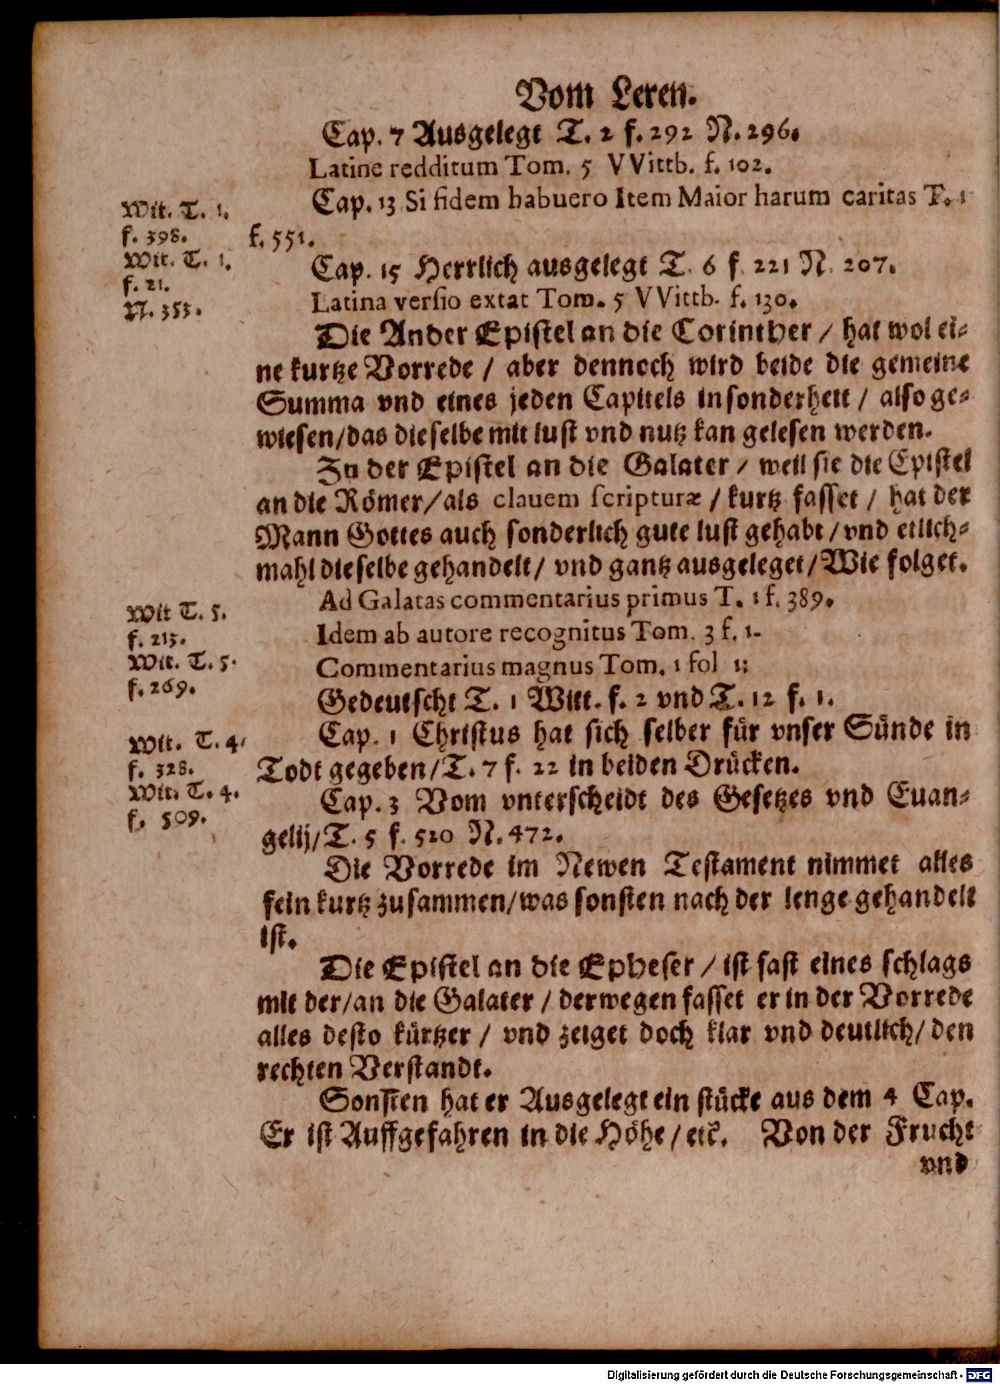 Vom Leren.
Cap. 7 Ausgelegt T. 2 f. 292 N. 296.
Latine redditum Tom. 5 VVittb. f. 102.
Cap. 13 Si fidem habuero Item Maior harum caritas T. 1
f. 551.
Wit. T. 1.
f. 398.
Wit. T. 1.
f. 21.
N. 353.
Cap. 15 Herrlich ausgelegt T. 6 f. 221 N. 207.
Latina versio extat Tom. 5 VVittb. f. 130.
Die Ander Epistel an die Corinther / hat wol ei-
ne kurtze Vorrede / aber dennoch wird beide die gemeine
Summa vnd eines jeden Capitels insonderheit / also ge-
wiesen/das dieselbe mit lust vnd nutz kan gelesen werden.
In der Epistel an die Galater / weil sie die Epistel
an die Römer/als clauem scripturæ / kurtz fasset / hat der
Mann Gottes auch sonderlich gute lust gehabt / vnd etlich-
mahl dieselbe gehandelt/ vnd gantz ausgeleget/Wie folget.
Ad Galatas commentarius primus T. 1 f. 389.
Idem ab autore recognitus Tom. 3 f. 1.
Commentarius magnus Tom. 1 fol 1;
Gedeutscht T. 1 Witt. f. 2 vnd T. 12 f. 1.
Wit T. 5.
f. 213.
Wit. T. 5.
f. 269.
Cap. 1 Christus hat sich selber für vnser Sünde in
Todt gegeben/T. 7 f. 22 in beiden Drücken.
Wit. T. 4.
f. 328.
Wit. T. 4.
f. 509.
Cap. 3 Vom vnterscheidt des Gesetzes vnd Euan-
gelij/T. 5 f. 520 N. 472.
Die Vorrede im Newen Testament nimmet alles
fein kurtz zusammen/was sonsten nach der lenge gehandelt
ist.
Die Epistel an die Epheser / ist fast eines schlags
mit der/an die Galater / derwegen fasset er in der Vorrede
alles desto kürtzer / vnd zeiget doch klar vnd deutlich/ den
rechten Verstandt.
Sonsten hat er Ausgelegt ein stücke aus dem 4 Cap.
Er ist Auffgefahren in die Höhe / etc. Von der Frucht
vnd
Digitalisierung gefördert durch die Deutsche Forschungsgemeinschaft - DFG